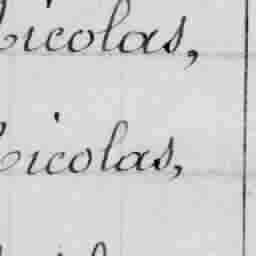 Nicolas,
Nicolas,